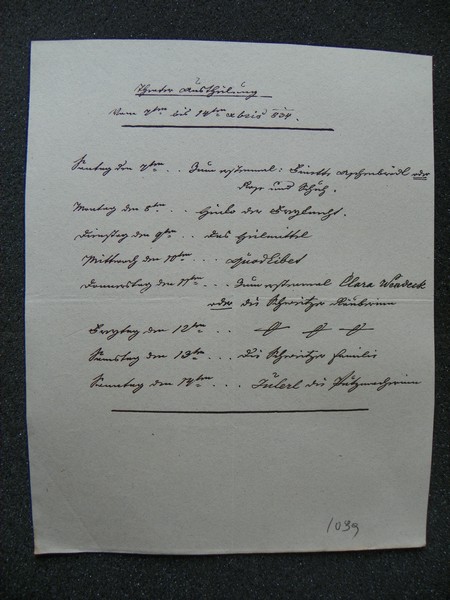 Theater Austheilung
Vom 7ten bis 14ten xbris 834.
Sontag den 7ten . . Zum erstenmal: Finette Aschenbrödl oder
Rose und Schuh.
Montag den 8ten . . . der
Dienstag den 9ten . . Das Heilmittel
Mittwoch den 10ten . . . Quodlibet
Donnerstag den 11ten . . . Zum erstenmal Clara Wendeck
oder die Schweitzer Räuberinn
Freytag den 12ten . . .
Samstag den 13ten . . . Die Schweitzer Familie
Sonntag den 14ten . . . Julerl die Putzmacherinn
1039